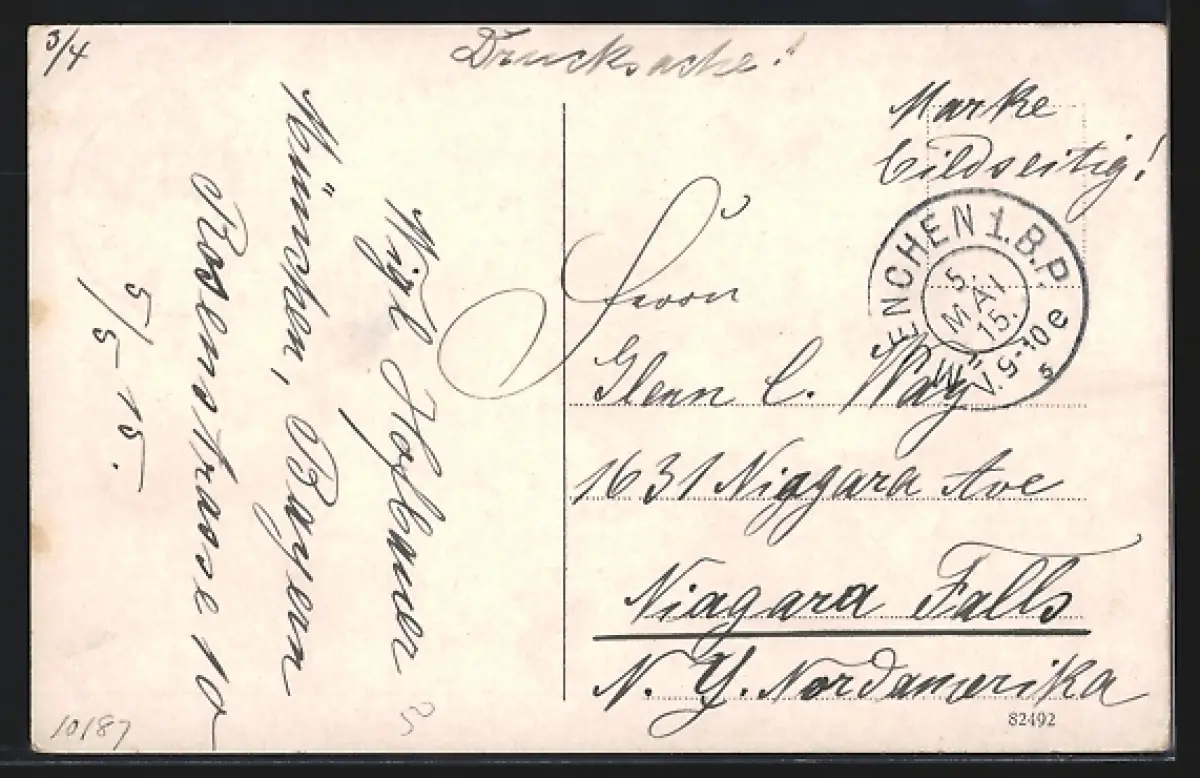 3/4
Drucksache!
Marke
bildseitig!
MUENCHEN 1. B.P.
5 MAI 15.
V. 9-10 e
Herrn
Glenn C. Way
1631 Niagara Ave
Niagara Falls
N. Y. Nordamerika
82492
Hofbauer
München, Bayern
Rosenstrasse 10
5/5 15.
10187